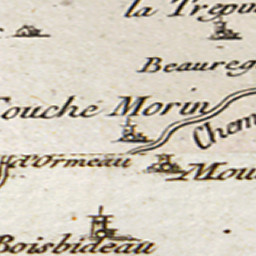 la Trepin
Beaureg
Couche Morin
Chem
d'Ormeau
Mou
Boisbideau